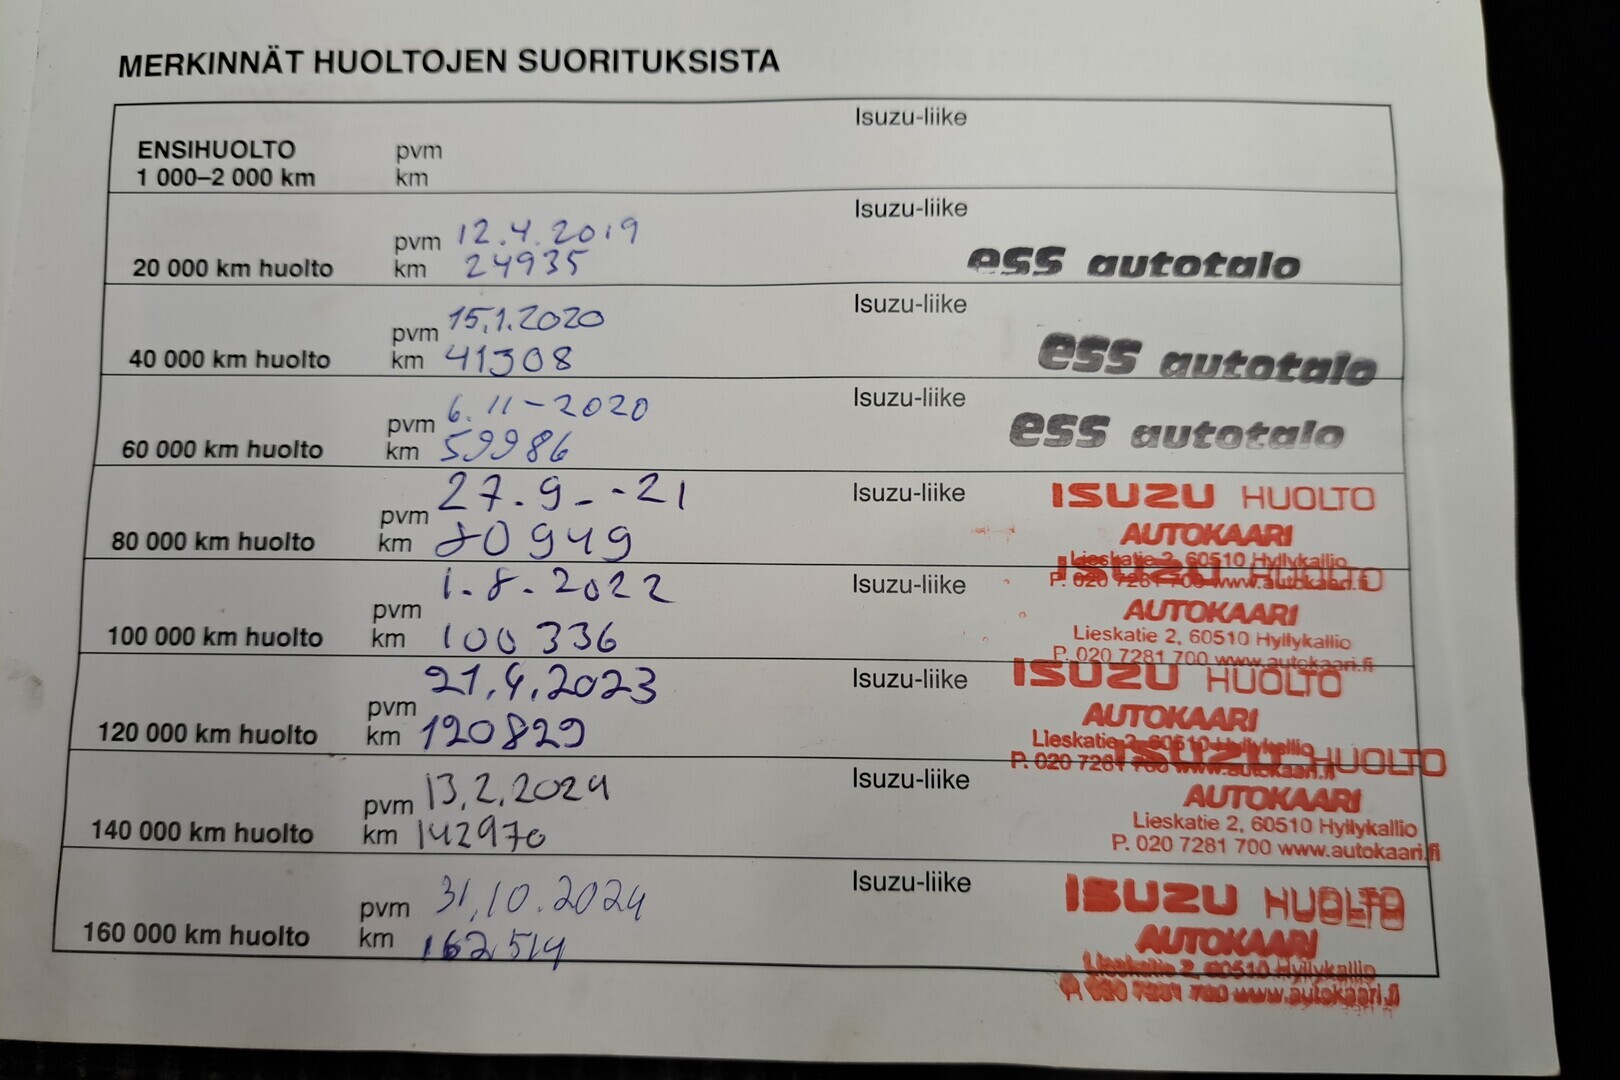 MERKINNÄT HUOLTOJEN SUORITUKSISTA
Isuzu-liike
ENSIHUOLTO pvm
1 000–2 000 km km
Isuzu-liike
pvm 12.4.2019
20 000 km huolto km 24935 ess autotalo
Isuzu-liike
pvm 15.1.2020
40 000 km huolto km 41308 ess autotalo
Isuzu-liike
pvm 6.11-2020
60 000 km huolto km 59986 ess autotalo
Isuzu-liike ISUZU HUOLTO
pvm 27.9.-21 AUTOKAARI
80 000 km huolto km 80949 Lieskatie 2, 60510 Hyllykallio
P. 020 7281 700 www.autokaari.fi
Isuzu-liike ISUZU HUOLTO
pvm 1.8.2022 AUTOKAARI
100 000 km huolto km 100 336 Lieskatie 2, 60510 Hyllykallio
P. 020 7281 700 www.autokaari.fi
Isuzu-liike ISUZU HUOLTO
pvm 21.4.2023 AUTOKAARI
120 000 km huolto km 120829 Lieskatie 2, 60510 Hyllykallio
P. 020 7281 700 www.autokaari.fi
Isuzu-liike ISUZU HUOLTO
pvm 13.2.2024 AUTOKAARI
140 000 km huolto km 142970 Lieskatie 2, 60510 Hyllykallio
P. 020 7281 700 www.autokaari.fi
Isuzu-liike ISUZU HUOLTO
pvm 31.10.2024 AUTOKAARI
160 000 km huolto km 162514 Lieskatie 2, 60510 Hyllykallio
P. 020 7281 700 www.autokaari.fi